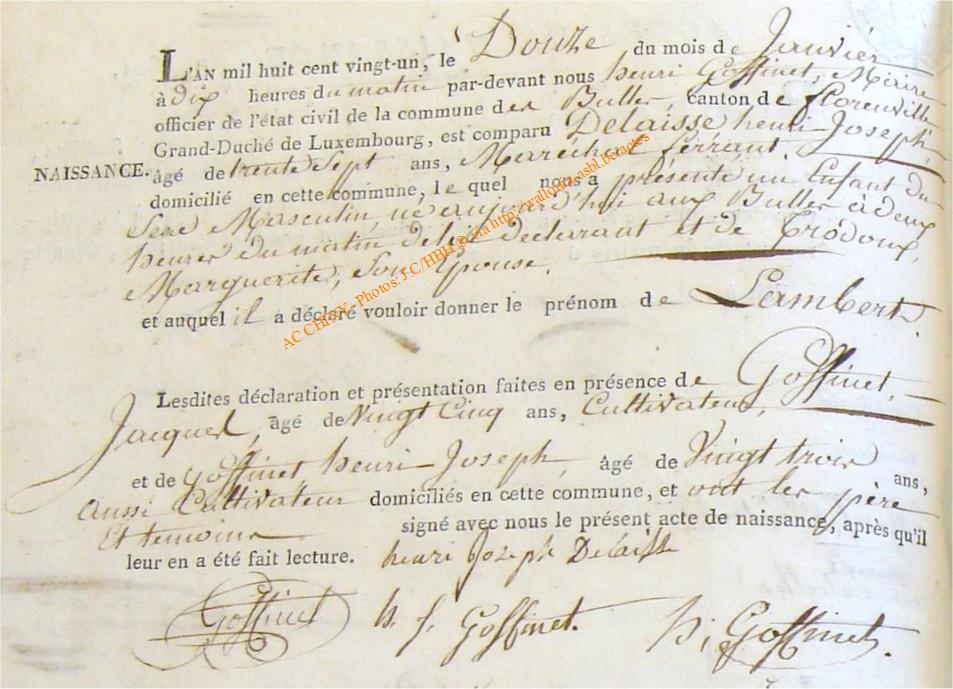 L'AN mil huit cent vingt-un, le Douze du mois de Janvier
à dix heures du matin par-devant nous henri Goffinet, Maire
officier de l'état civil de la commune des Bulles, canton de florenville
Grand-Duché de Luxembourg, est comparu Delaisse henri-Joseph,
NAISSANCE. âgé de trente Sept ans, Maréchal ferrant
domicilié en cette commune, le quel nous a présenté un Enfant du
Sexe Masculin, né aujourd'hui aux Bulles à deux
heures du matin de lui déclarant et de Trodoux,
Marguerite, Son Epouse.
et auquel il a déclaré vouloir donner le prénom de Lambert.
AC CHINY - Photos: J-C/HBH @ via http://wallonia.asbl.be/actes
Lesdites déclaration et présentation faites en présence de Goffinet,
Jacques, âgé de Vingt Cinq ans, Cultivateur,
et de Goffinet henri-Joseph, âgé de Vingt trois ans,
aussi Cultivateur domiciliés en cette commune, et ont les père
Et temoins signé avec nous le présent acte de naissance, après qu'il
leur en a été fait lecture. henri Joseph Delaisse
Goffinet h. j. Goffinet. h; Goffinet.